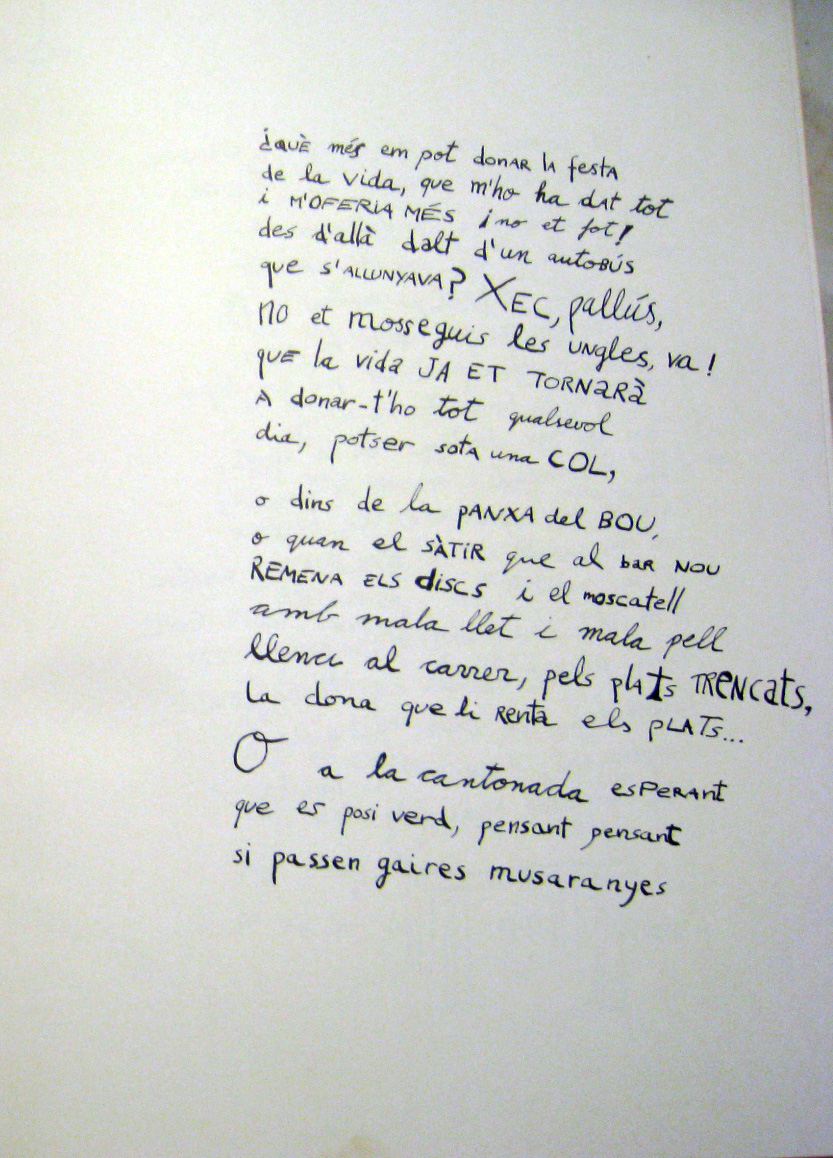 ¿QUÈ més em pot donAR lA festA
de la vida, que m'ho ha dAt tot
i M'OFERIA MÉS ¡no et fot!
des d'allà dalt d'un autoBÚS
que s'ALLUNYAVA? XEC, pallús,
NO et mosseguis les UNgles, va!
quE la vida JA ET TORNaRÀ
A donar-t'ho tot qualsevol
dia, potser sotA una COL,
o dins de la PANXA del BOU,
o quan el SÀTIR que al baR NOU
REMENA ELS discs i el moscatell
amb mala llet i mala pell
llenci al carrer, pels plAts TRENcats,
la dona que li RentA els PLATS...
O a la cantonada esPERAnt
que es posi verd, pensant pensant
si passen gaires musaranyes